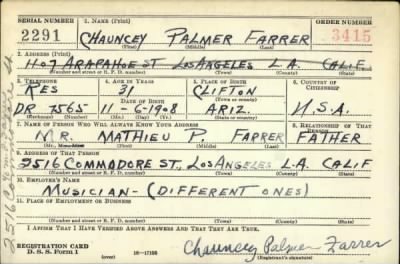 SERIAL NUMBER 1. NAME (Print) ORDER NUMBER
2291 CHAUNCEY PALMER FARRER 3415
(First) (Middle) (Last)
2. ADDRESS (Print)
1107 ARAPAHOE ST LOS ANGELES L.A. CALIF
(Number and street or R. F. D. number) (Town) (County) (State)
3. TELEPHONE 4. AGE IN YEARS 5. PLACE OF BIRTH 6. COUNTRY OF CITIZENSHIP
RES 31 CLIFTON
DATE OF BIRTH (Town or county)
DR 7565 11-6-1908 ARIZ. U.S.A.
(Exchange) (Number) (Mo.) (Day) (Yr.) (State or country)
7. NAME OF PERSON WHO WILL ALWAYS KNOW YOUR ADDRESS 8. RELATIONSHIP OF THAT PERSON
MR. MATHIEU P. FARRER FATHER
(First) (Middle) (Last)
9. ADDRESS OF THAT PERSON
2516 COMMODORE ST., LOS ANGELES L.A. CALIF
(Number and street or R. F. D. number) (Town) (County) (State)
10. EMPLOYER'S NAME
MUSICIAN - (DIFFERENT ONES)
11. PLACE OF EMPLOYMENT OR BUSINESS
(Number and street or R. F. D. number) (Town) (County) (State)
I AFFIRM THAT I HAVE VERIFIED ABOVE ANSWERS AND THAT THEY ARE TRUE.
REGISTRATION CARD
D. S. S. Form 1 (over) 16-17105 Chauncey Palmer Farrer
(Registrant's signature)
2516 Commodore St